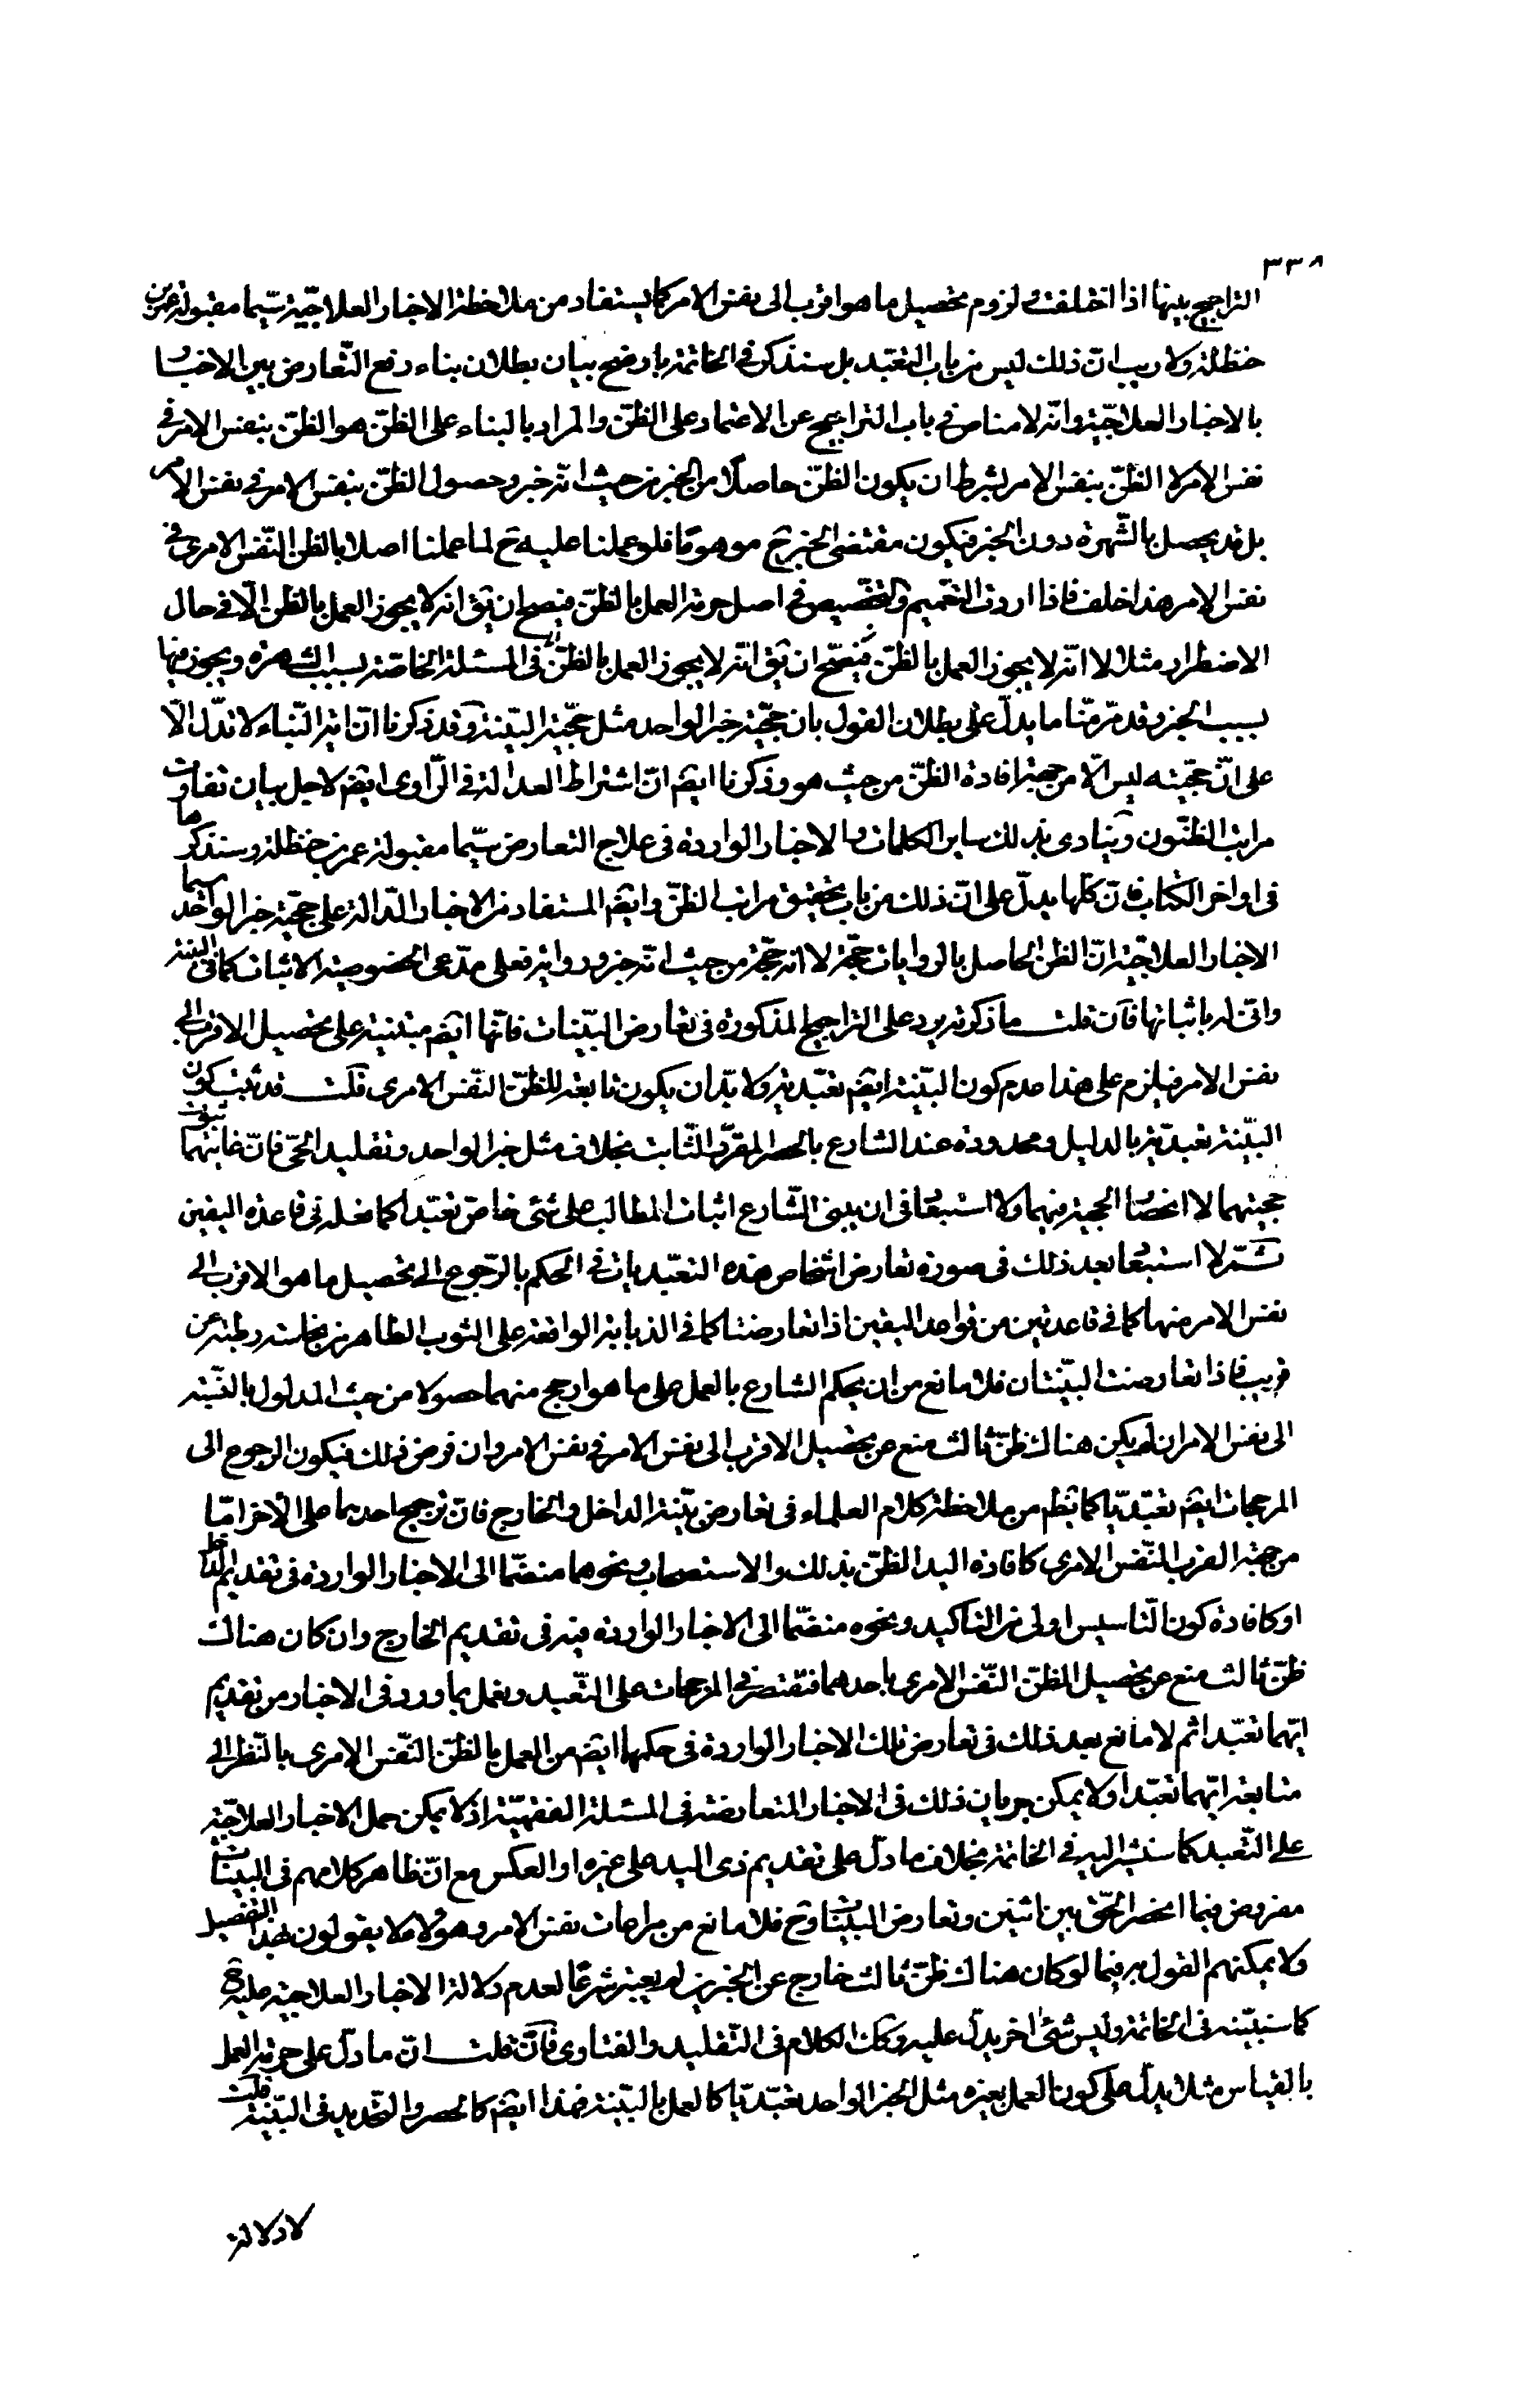 ٣٣٨
التراجيح بينها اذا اختلفت لزوم تحصيل ما هو اقرب الى نفس الامر كما يستفاد من ملاحظة الاخبار العلاجيّة سيّما مقبولة عمر بن
حنظلة ولا ريب انّ ذلك ليس من باب التعبّد بل سنذكر فى الخاتمة باوضح بيان بطلان بناء دفع التّعارض بين الاخبار
بالاخبار العلاجيّة وانّه لا مناص فى باب التراجيح عن الاعتماد على الظنّ والمراد بالبناء على الظنّ هو الظنّ بنفس الامر فى
نفس الامر لا الظنّ بنفس الامر بشرط ان يكون الظنّ حاصلا من الخبر من حيث انّه خبر وحصول الظنّ بنفس الامر فى نفس الامر
بل قد يحصل بالشّهرة دون الخبر فيكون مقتضى الخبر ح موهومًا فلو عملنا عليه ح لما عملنا اصلا بالظن النّفس الامرى فى
نفس الامر هذا خلف فاذا اردت التّعميم والتّخصيص فى اصل حرمة العمل بالظنّ فيصح ان يق انه لا يجوز العمل بالظن الّا فى حال
الاضطرار مثلا لا انّه لا يجوز العمل بالظنّ فيصحّ ان يق انّه لا يجوز العمل بالظنّ فى المسئلة الخاصّة بسبب الشهرة ويجوز فيها
بسبب الخبر وقد مرّ منّا ما يدلّ على بطلان القول بان حجّية خبر الواحد مثل حجّية البيّنة وقد ذكرنا انّ اية النّباء لا تدلّ الّا
على انّ حجّيته ليس الّا من جهة افادة الظنّ من حيث هو وذكرنا ايضم انّ اشتراط العدالة فى الرّاوى ايضم لاجل بيان تفاوت
مراتب الظنّون وينادى بذلك ساير الكلمات والاخبار الواردة فى علاج التعارض سيّما مقبولة عمر بن حنظلة وسنذكرها
فى اواخر الكتاب فانّ كلّها يدلّ على انّ ذلك من باب تحقيق مراتب الظنّ وايضم المستفاد من الاخبار الدّالة على حجّية خبر الواحد سيما
الاخبار العلاجيّة انّ الظن الحاصل بالروايات حجّة لا انه حجّة من حيث انّه خبر ورواية فعلى مدّعى الخصوصية الاثبات كما فى البيّنة
وانّى له باثباتها فان قلت ما ذكرته يرد على التراجيح المذكورة فى تعارض البيّنات فانّها ايضم مبتنية على تحصيل الاقرب الى
نفس الامر فيلزم على هذا عدم كون البيّنة ايضم تعبّدية ولا بدّ ان يكون تابعة للظنّ النّفس الامرى قلت قد ثبت كون
البيّنة تعبديّة بالدليل ومحدودة عند الشارع بالحصر المقرّر الثّابت بخلاف مثل خبر الواحد وتقليد الحىّ فانّ غايتهما ثبوت
حجيتهما لا انحصار الحجية فيهما ولا استبعاد فى ان يبنى الشّارع اثبات المطالب على شئ خاصّ تعبّدا كما فعله فى قاعدة اليقين
ثمّ لا استبعاد بعد ذلك فى صورة تعارض اشخاص هذه التعبّديات فى الحكم بالرّجوع الى تحصيل ما هو الاقرب الى
نفس الامر منهما كما فى قاعدتين من قواعد اليقين اذا تعارضتا كما فى الذبابة الواقعة على الثوب الطاهر من نجاسة رطبة عن
قريب فاذا تعارضت البيّنتان فلا مانع من ان يحكم الشارع بالعمل على ما هو ارجح منهما حصولا من حيث المدلول بالنّسبة
الى نفس الامر ان لم يكن هناك ظنّ ثالث منع عن تحصيل الاقرب الى نفس الامر فى نفس الامر وان فرض ذلك فيكون الرجوع الى
المرجحات ايضم تعبّديّا كما يظهر من ملاحظة كلام العلماء فى تعارض بيّنة الداخل والخارج فانّ ترجيح احديهما على الاخر امّا
من جهة القرب النّفس الامرى كافادة اليد الظنّ بذلك والاستصحاب ونحوهما منضمّا الى الاخبار الواردة فى تقديم الداخل
او كافادة كون التّاسيس اولى من التاكيد ونحوه منضمّا الى الاخبار الواردة فيه فى تقديم الخارج وان كان هناك
ظنّ ثالث منع عن تحصيل الظنّ النّفس الامرى باحدهما فنقتصر فى المرجحات على التّعبد ونعمل بما ورد فى الاخبار من تقديم
ايّهما تعبّدا ثم لا مانع بعد ذلك فى تعارض تلك الاخبار الواردة فى حكمها ايضم من العمل بالظنّ النّفس الامرى بالنّظر الى
متابعة ايّهما تعبّدا ولا يمكن جريان ذلك فى الاخبار المتعارضة فى المسئلة الفقهيّة اذ لا يمكن حمل الاخبار العلاجيّة
على التّعبد كما سنشير اليه فى الخاتمة بخلاف ما دلّ على تقديم ذى اليد على غيره او العكس مع انّ ظاهر كلامهم فى البيّنات
مفروض فيما انحصر الحقّ بين اثنين وتعارض البيّنات وح فلا مانع من مراعات نفس الامر وهؤلاء لا يقولون بهذا التفصيل
ولا يمكنهم القول به فيما لو كان هناك ظنّ ثالث خارج عن الخبرين لم يعتبر شرعًا لعدم دلالة الاخبار العلاجية عليه ح
كما سنبيّنه فى الخاتمة وليس شئ اخر يدلّ عليه وكك الكلام فى التّقليد والفتاوى فانّ قلت انّ ما دلّ على حرمة العمل
بالقياس مثلا يدلّ على كون العمل بغيره مثل الخبر الواحد تعبّديّا كالعمل بالبيّنة فهذا ايضم كالحصر والتّحديد فى البيّنة قلت
لا دلالة